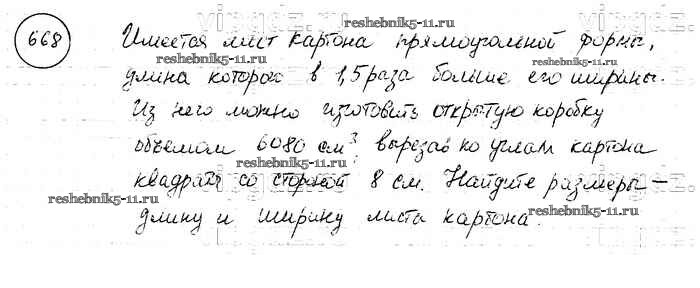 668
Имеется лист картона прямоугольной формы,
длина которого в 1,5 раза больше его ширины.
Из него можно изготовить открытую коробку
объемом 6080 см³, вырезав по углам картона
квадраты со стороной 8 см. Найдите размеры –
длину и ширину листа картона.
reshebnik5-11.ru
reshebnik5-11.ru
reshebnik5-11.ru
reshebnik5-11.ru
reshebnik5-11.ru
reshebnik5-11.ru